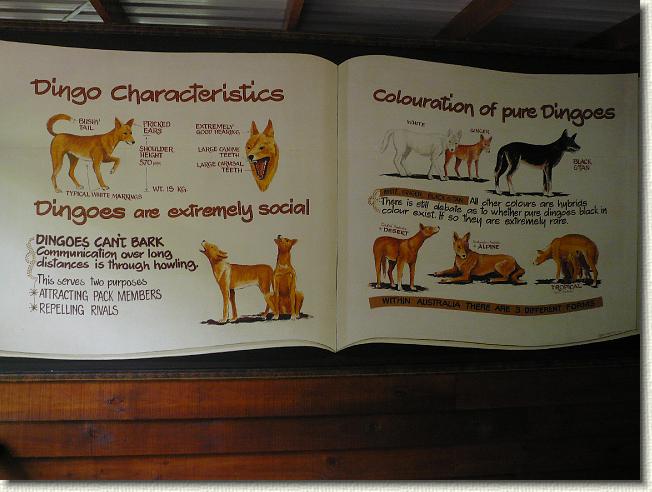 Dingo Characteristics
BUSHY TAIL
PRICKED EARS
SHOULDER HEIGHT 570 mm
TYPICAL WHITE MARKINGS
WT. 15 KG.
EXTREMELY GOOD HEARING
LARGE CANINE TEETH
LARGE CARNASAL TEETH
Dingoes are extremely social
DINGOES CAN'T BARK
Communication over long
distances is through howling.
This serves two purposes
* ATTRACTING PACK MEMBERS
* REPELLING RIVALS
Colouration of pure Dingoes
WHITE
GINGER
BLACK & TAN
WHITE, GINGER, BLACK & TAN All other colours are hybrids
There is still debate as to whether pure dingoes black in
colour exist. If so they are extremely rare.
DESERT
ALPINE
TROPICAL
WITHIN AUSTRALIA THERE ARE 3 DIFFERENT FORMS